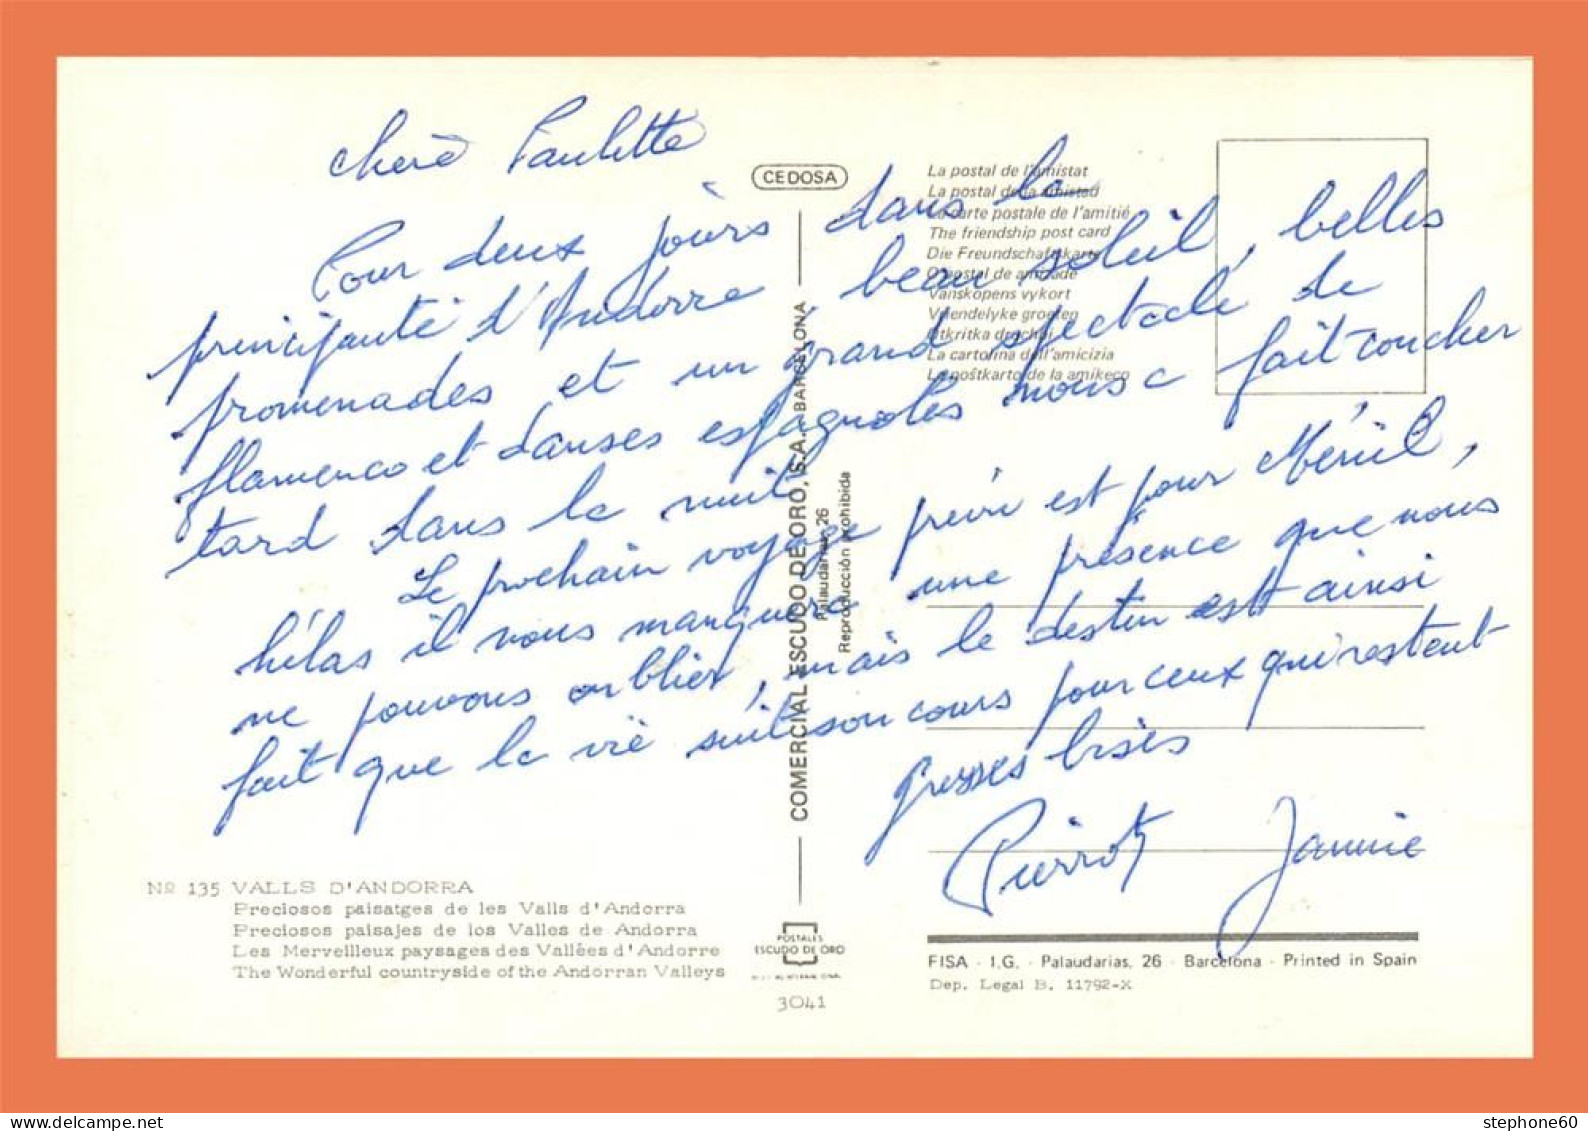 chere Paulette
Pour deux jours dans la
principauté d'Andorre, beau soleil, belles
promenades et un grand spectacle de
flamenco et danses espagnoles nous a fait coucher
tard dans la nuit
Le prochain voyage prévu est pour Ménil,
hélas il nous manquera une présence que nous
ne pouvons oublier, mais le destin est ainsi
fait que la vie suit son cours pour ceux qui restent
grosses bises
Pierrot Jannie
CEDOSA
La postal de l'amistat
La postal de la amistad
La carte postale de l'amitié
The friendship post card
Die Freundschaftskarte
O postal de amizade
Vänskapens vykort
Vriendelyke groeten
Otkritka druchbi
La cartolina dell'amicizia
La poŝtkarto de la amikeco
COMERCIAL ESCUDO DE ORO, S.A. BARCELONA
Palaudarias, 26
Reproducción prohibida
Nº 135 VALLS D'ANDORRA
Preciosos paisatges de les Valls d'Andorra
Preciosos paisajes de los Valles de Andorra
Les Merveilleux paysages des Vallées d'Andorre
The Wonderful countryside of the Andorran Valleys
POSTALES
ESCUDO DE ORO
3041
FISA - I.G. - Palaudarias, 26 - Barcelona - Printed in Spain
Dep. Legal B. 11792-X
stephone60